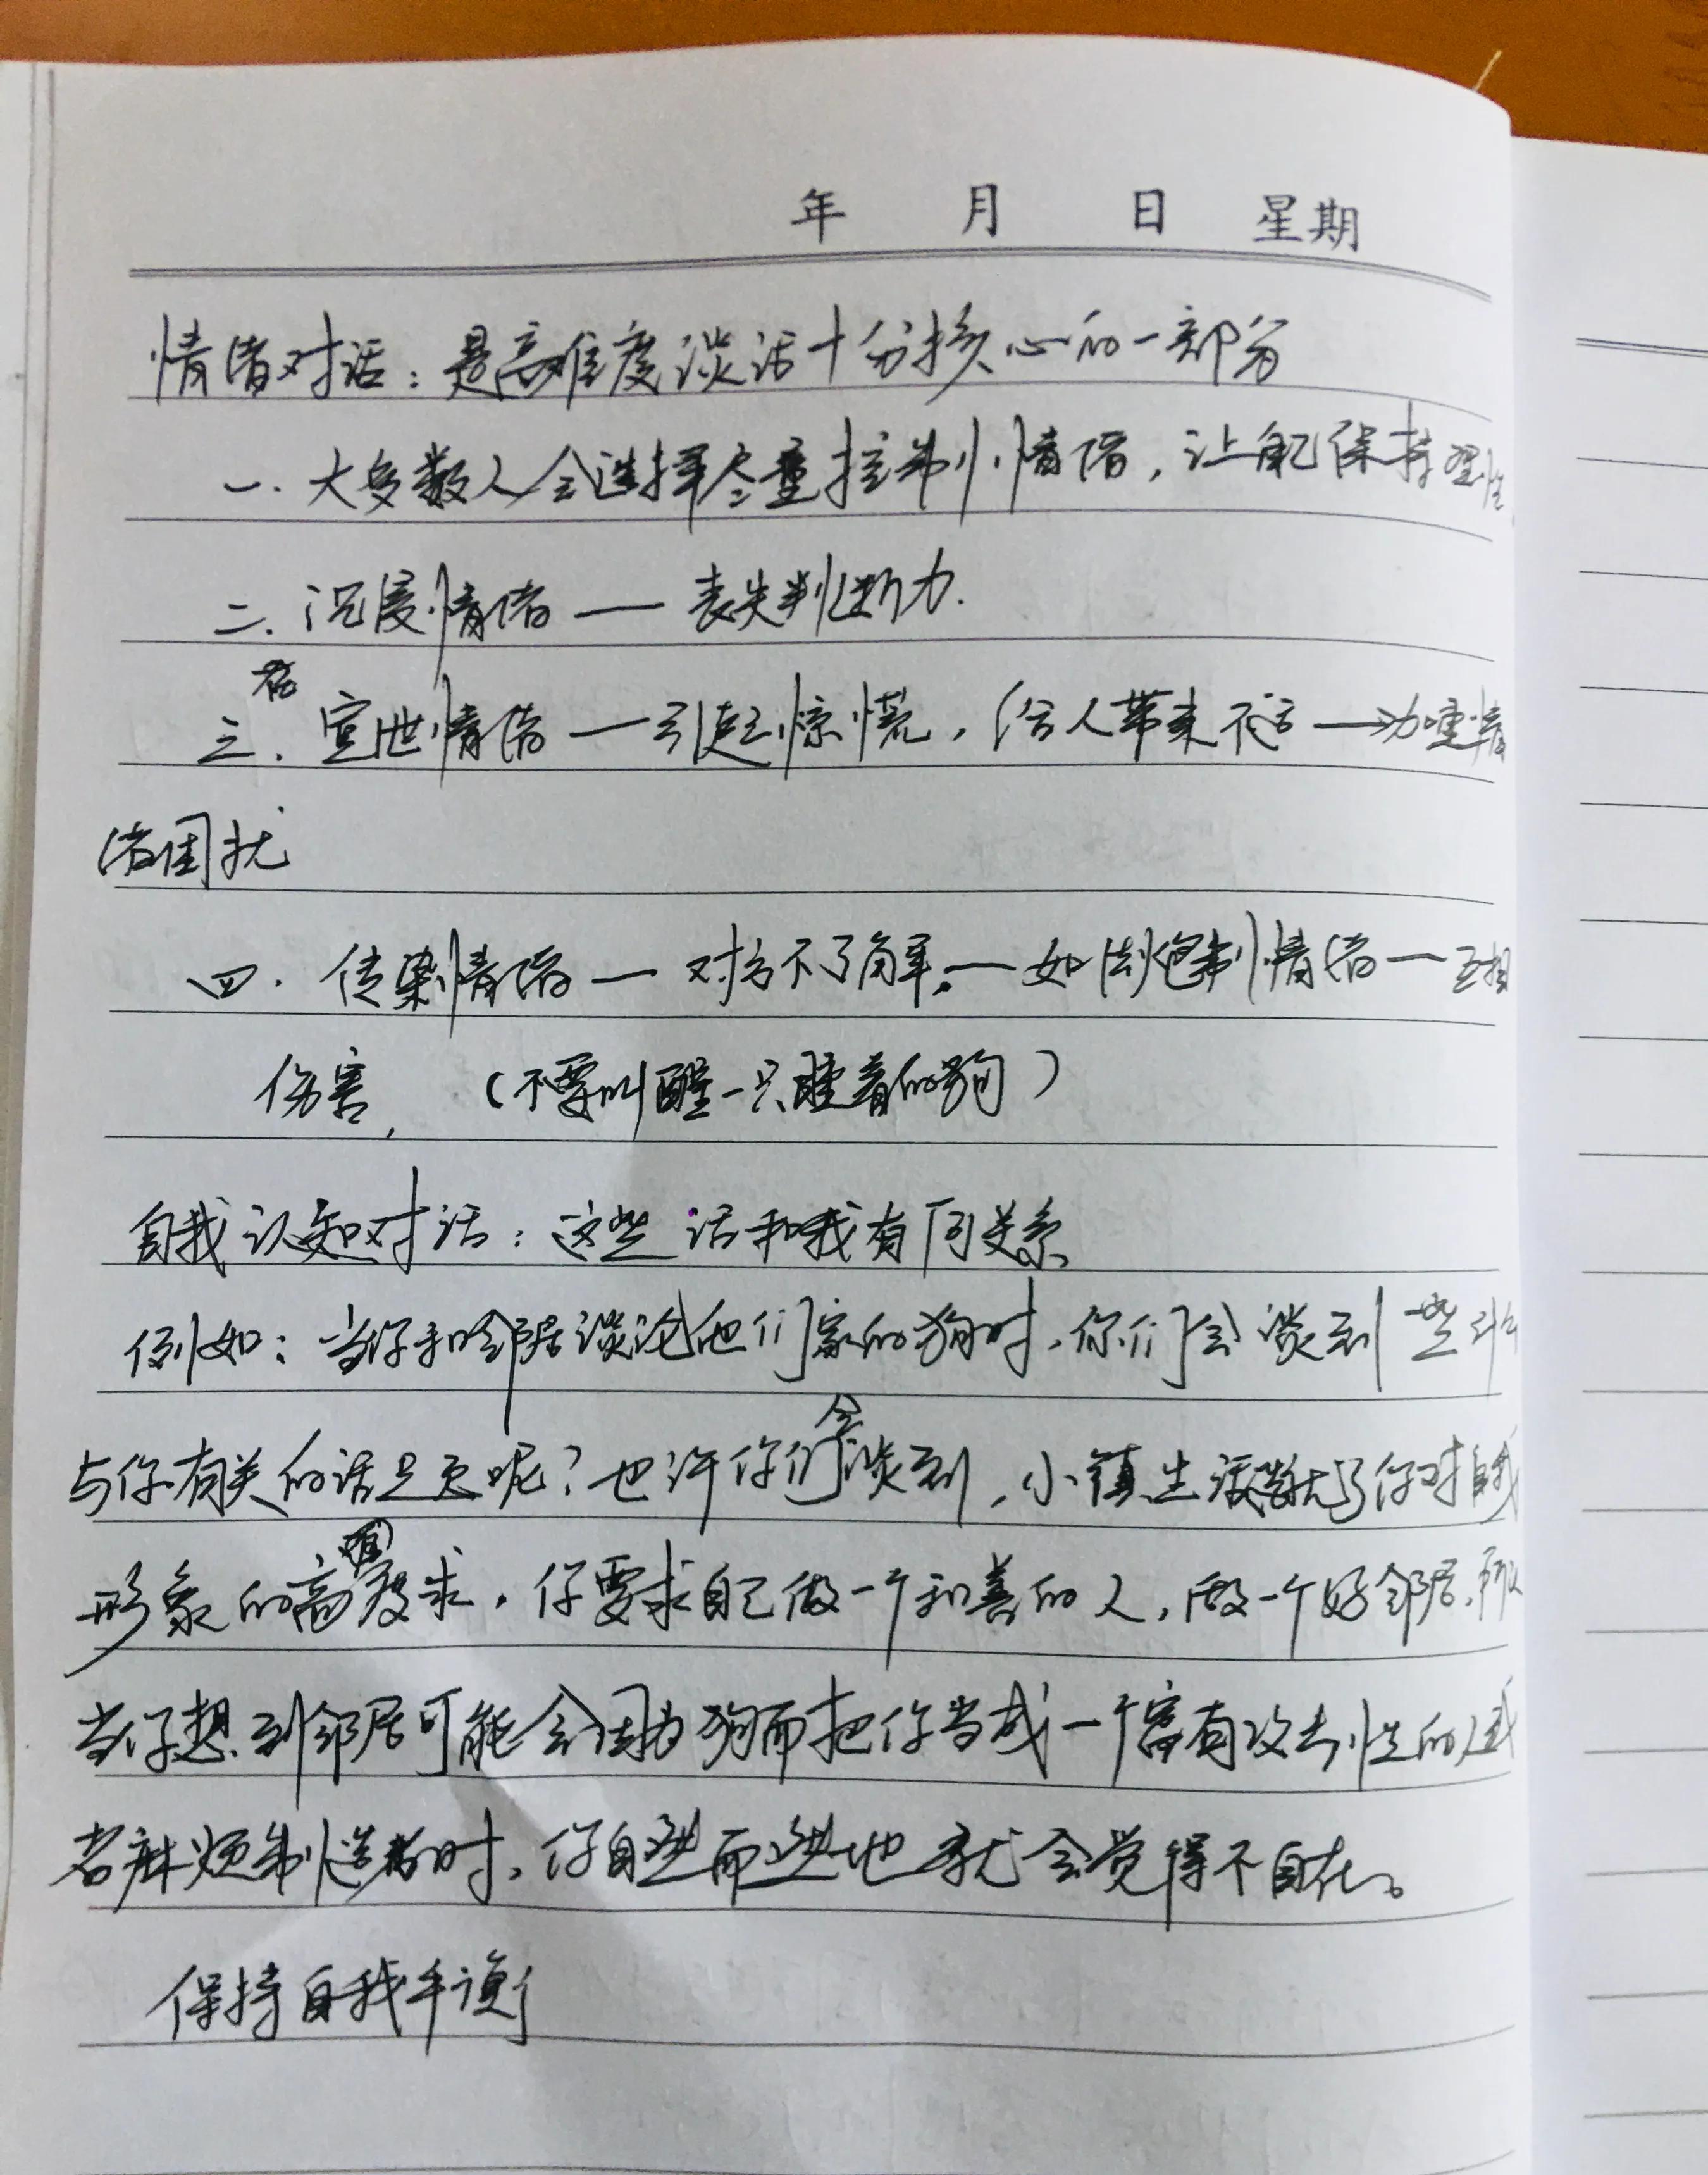 年 月 日 星期
情绪对话：是高难度谈话十分核心的一部分
一. 大多数人会选择尽量控制情绪，让自己保持理性
二. 沉浸情绪 — 丧失判断力.
若
三. 宣泄情绪 — 引起惊慌，给人带来不适 —
绪困扰
四. 传染情绪 — 对方不了解 — 如法炮制情绪 — 互相
伤害, （不要叫醒一只睡着的狗）
自我认知对话：这些话和我有何关系
例如：当你和邻居谈论他们家的狗时，你们会谈到一些
与你有关的话题呢？也许你们会谈到，小镇生活 了你对自我
形象的高度 求，你要求自己做一个和善的人，做一个好邻居，所以
当你想到邻居可能会因为狗而把你当成一个富有攻击性的人或
者麻烦制造者时，你自然而然地就会觉得不自在。
保持自我平衡